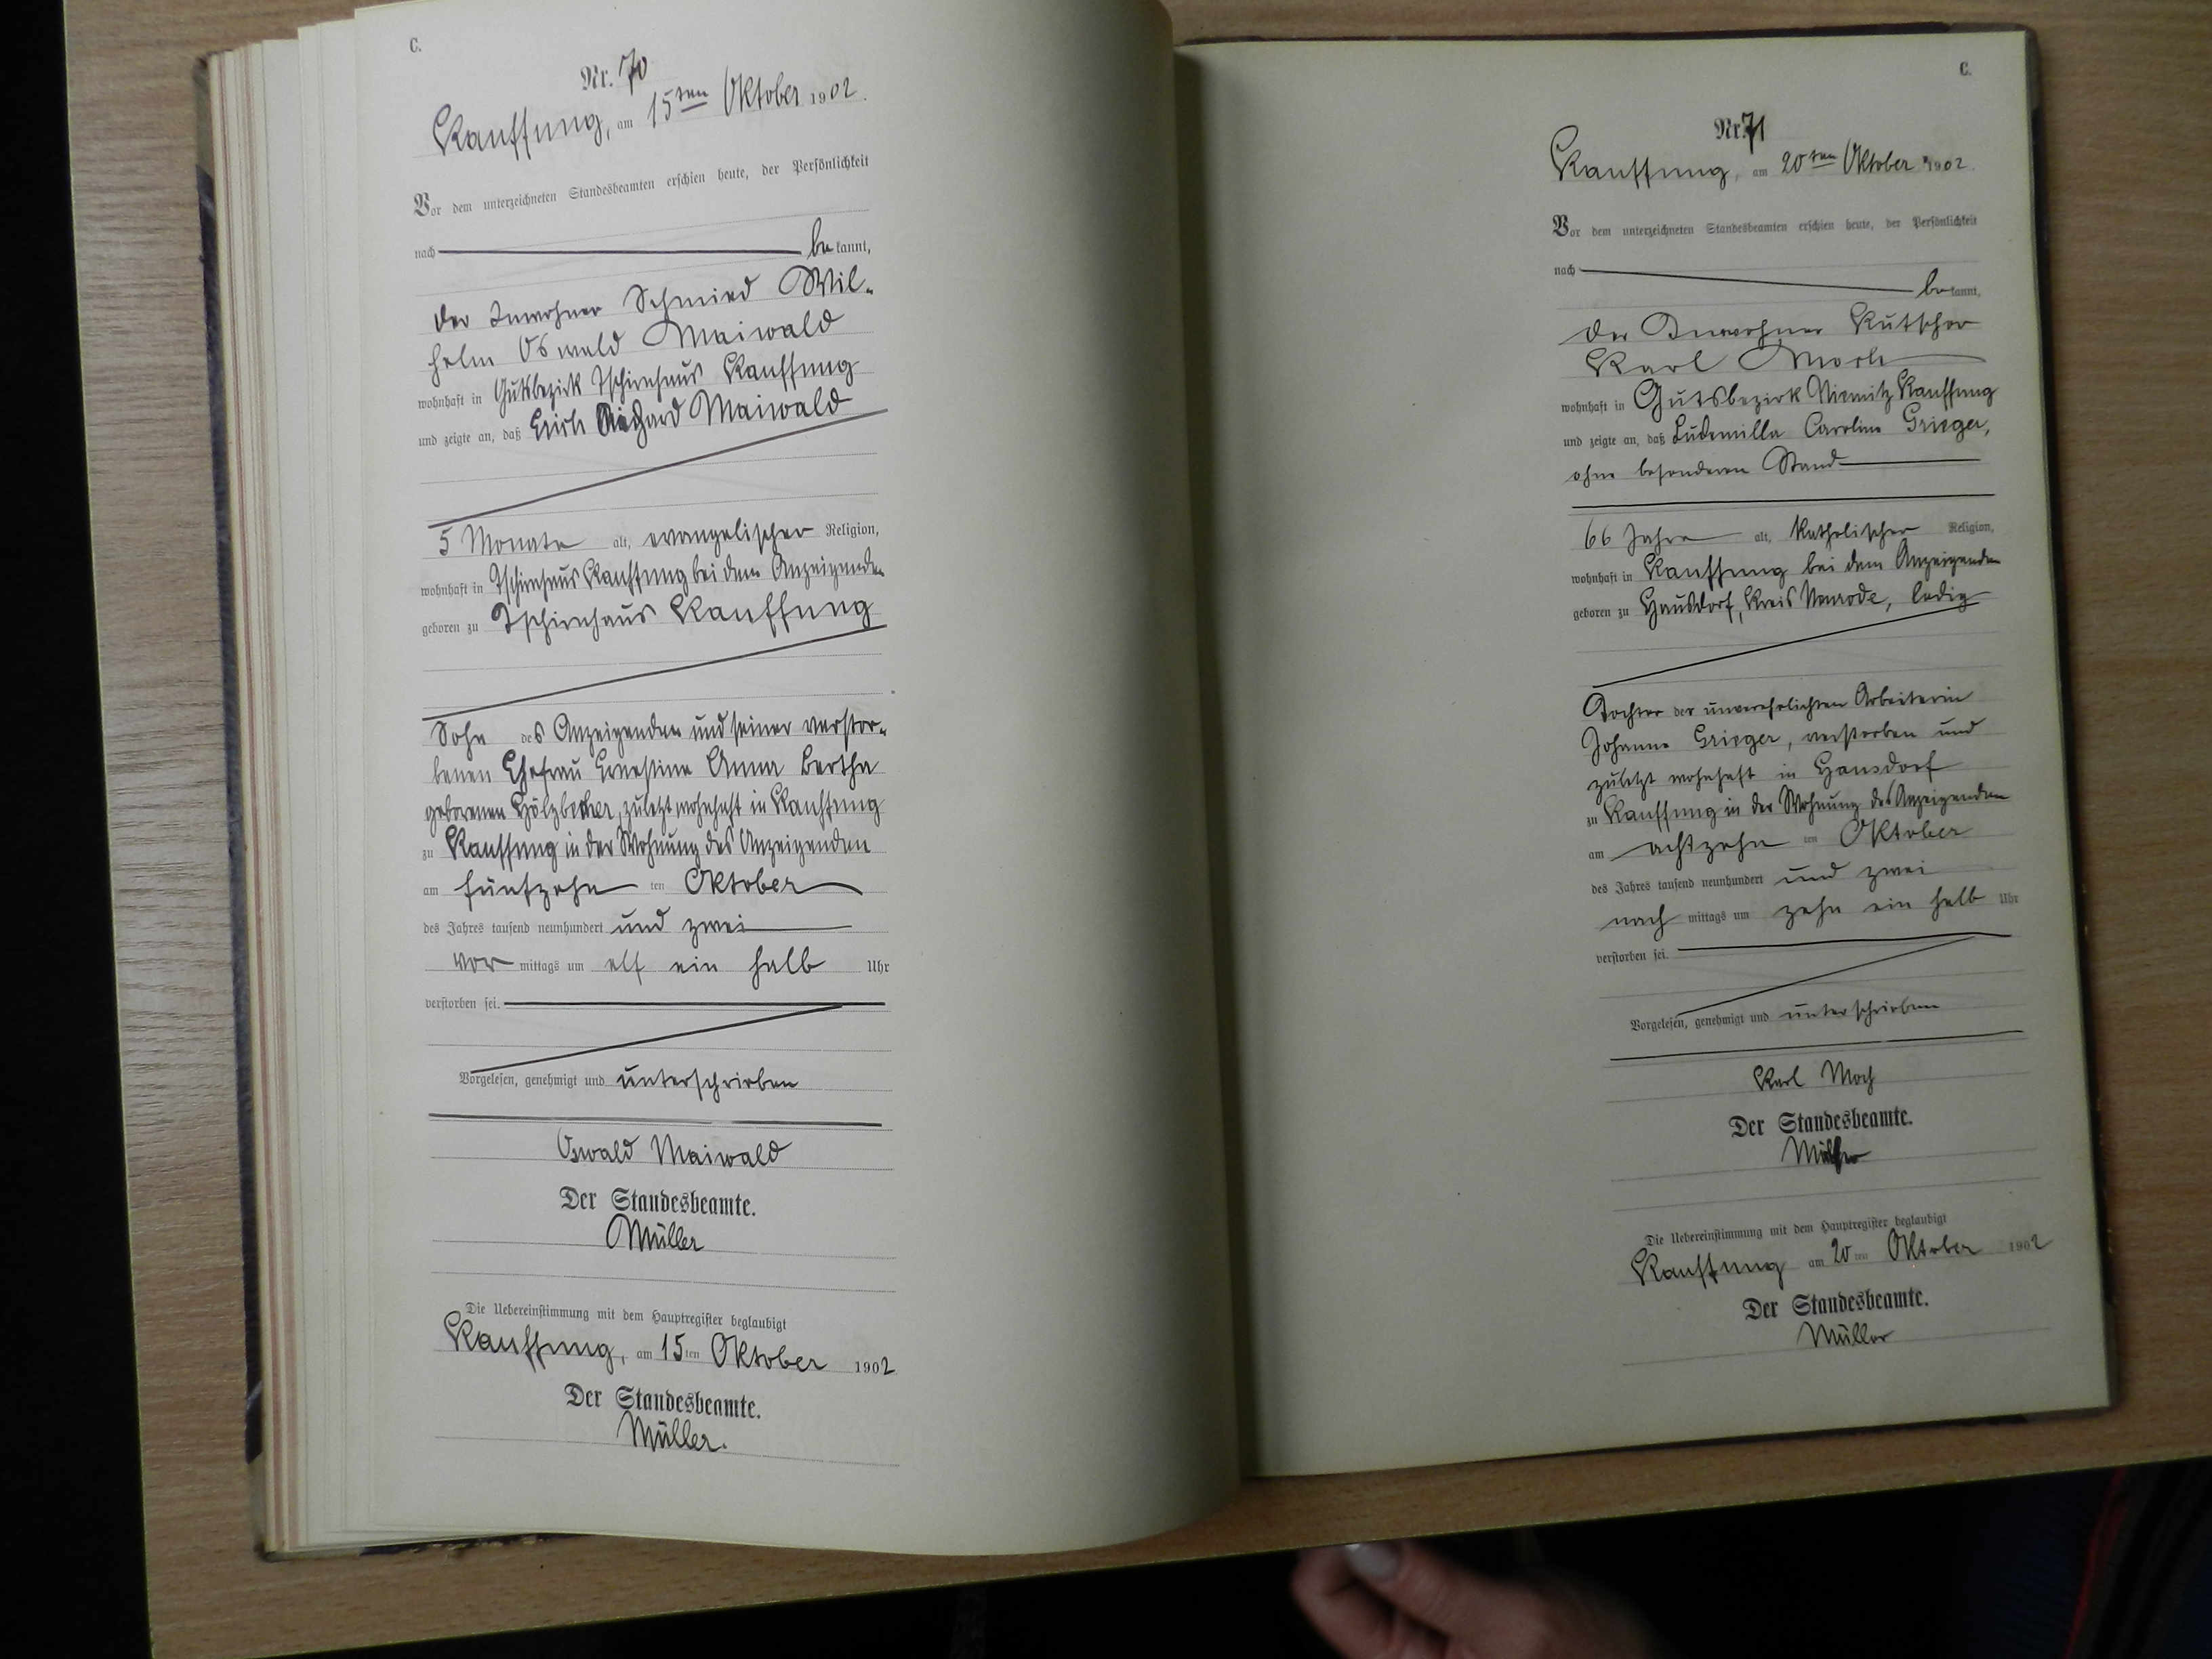 C.
Nr. 70
Kauffung, am 15ten Oktober 1902.
Vor dem unterzeichneten Standesbeamten erschien heute, der Persönlichkeit
nach bekannt,
der Inwohner Schmied Wil-
helm Oswald Maiwald
wohnhaft in Gutsbezirk Tschirnhaus Kauffung
und zeigte an, daß Erich Richard Maiwald
5 Monate alt, evangelischer Religion,
wohnhaft in Tschirnhaus Kauffung bei dem Anzeigenden
geboren zu Tschirnhaus Kauffung
Sohn des Anzeigenden und seiner verstor-
benen Ehefrau Ernestine Anna Bertha
geborenen Hölzbecher, zuletzt wohnhaft in Kauffung
zu Kauffung in der Wohnung des Anzeigenden
am fünfzehn ten Oktober
des Jahres tausend neunhundert und zwei
vor mittags um elf ein halb Uhr
verstorben sei.
Vorgelesen, genehmigt und unterschrieben
Oswald Maiwald
Der Standesbeamte.
Müller
Die Uebereinstimmung mit dem Hauptregister beglaubigt
Kauffung, am 15ten Oktober 1902
Der Standesbeamte.
Müller.
C.
Nr. 71
Kauffung, am 20ten Oktober 1902.
Vor dem unterzeichneten Standesbeamten erschien heute, der Persönlichkeit
nach bekannt,
der Inwohner Kutscher
Karl Moch
wohnhaft in Gutsbezirk Niemitz Kauffung
und zeigte an, daß Ludemilla Caroline Grieger,
ohne besonderen Stand
66 Jahre alt, katholischer Religion,
wohnhaft in Kauffung bei dem Anzeigenden
geboren zu Hausdorf, Kreis Neurode, ledig
Tochter der unverehelichten Arbeiterin
Johanne Grieger, verstorben und
zuletzt wohnhaft in Hausdorf
zu Kauffung in der Wohnung des Anzeigenden
am achtzehn ten Oktober
des Jahres tausend neunhundert und zwei
nach mittags um zehn ein halb Uhr
verstorben sei.
Vorgelesen, genehmigt und unterschrieben
Karl Moch
Der Standesbeamte.
Müller
Die Uebereinstimmung mit dem Hauptregister beglaubigt
Kauffung am 20ten Oktober 1902
Der Standesbeamte.
Müller